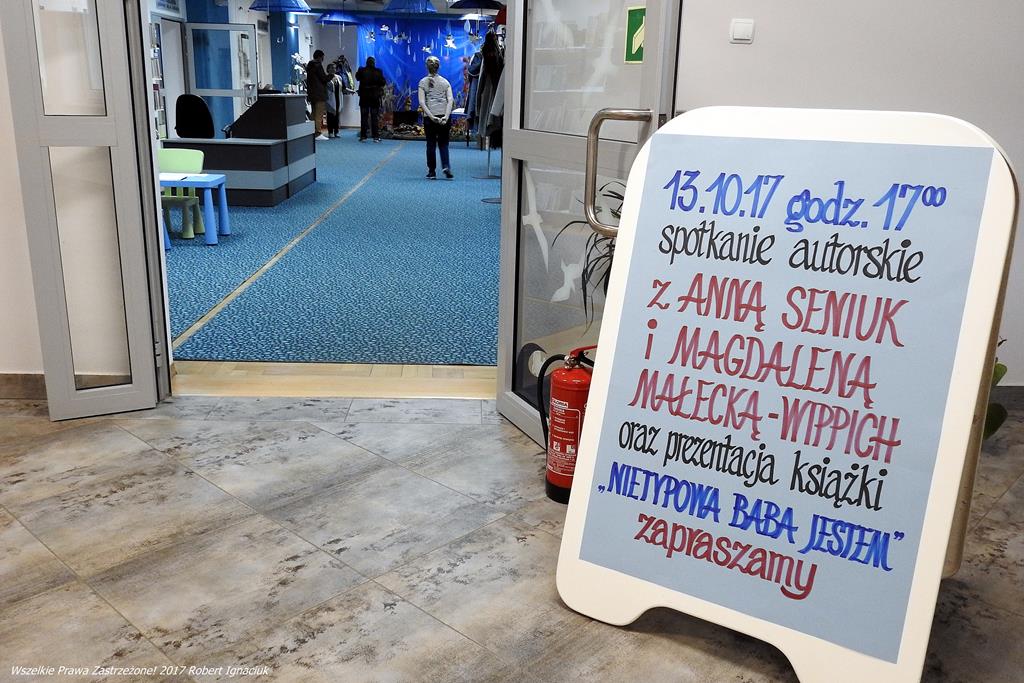 13.10.17 godz. 17⁰⁰
spotkanie autorskie
z ANNĄ SENIUK
i MAGDALENĄ
MAŁECKĄ-WIPPICH
oraz prezentacja książki
„NIETYPOWA BABA JESTEM”
zapraszamy
Wszelkie Prawa Zastrzeżone! 2017 Robert Ignaciuk